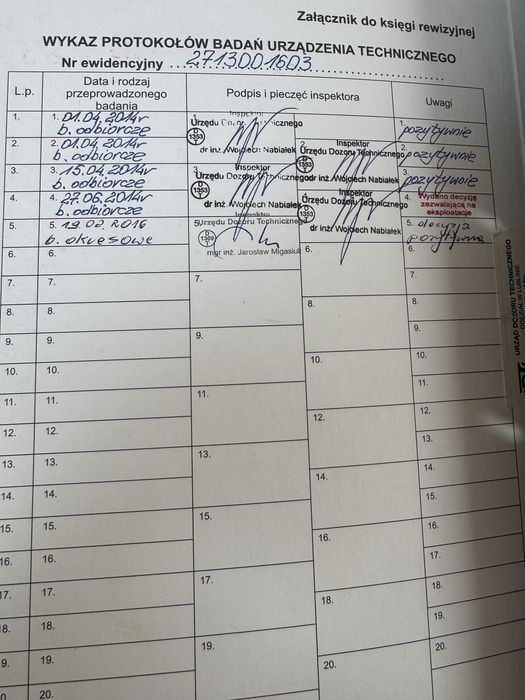 Załącznik do księgi rewizyjnej
WYKAZ PROTOKOŁÓW BADAŃ URZĄDZENIA TECHNICZNEGO
Nr ewidencyjny ...2713001603...
L.p. Data i rodzaj przeprowadzonego badania Podpis i pieczęć inspektora Uwagi
1. 1. 01.04.2014r 1. pozytywnie
b. odbiorcze
Inspektor
Urzędu Technicznego
dr inż. Wojciech Nabiałek
2. 2. 01.04.2014r 2. 2. pozytywnie
b. odbiorcze
Inspektor
Urzędu Dozoru Technicznego
dr inż. Wojciech Nabiałek
3. 3. 15.04.2014r 3. 3. pozytywnie
b. odbiorcze
Inspektor
Urzędu Dozoru Technicznego
dr inż. Wojciech Nabiałek
4. 4. 27.06.2014r 4. Wydano decyzję
b. odbiorcze zezwalającą na
eksploatację
Inspektor
Urzędu Dozoru Technicznego
dr inż. Wojciech Nabiałek
5. 5. 19.02.2016 5. 5. decyzja
b. okresowe pozytywna
Urzędu Dozoru Technicznego
mgr inż. Jarosław Migasiuk
6. 6. 6. 6.
7. 7. 7. 7.
8. 8. 8. 8.
9. 9. 9. 9.
10. 10. 10. 10.
11. 11. 11. 11.
12. 12. 12. 12.
13. 13. 13. 13.
14. 14. 14. 14.
15. 15. 15. 15.
16. 16. 16. 16.
17. 17. 17. 17.
18. 18. 18. 18.
19. 19. 19. 19.
20. 20. 20.
URZĄD DOZORU TECHNICZNEGO